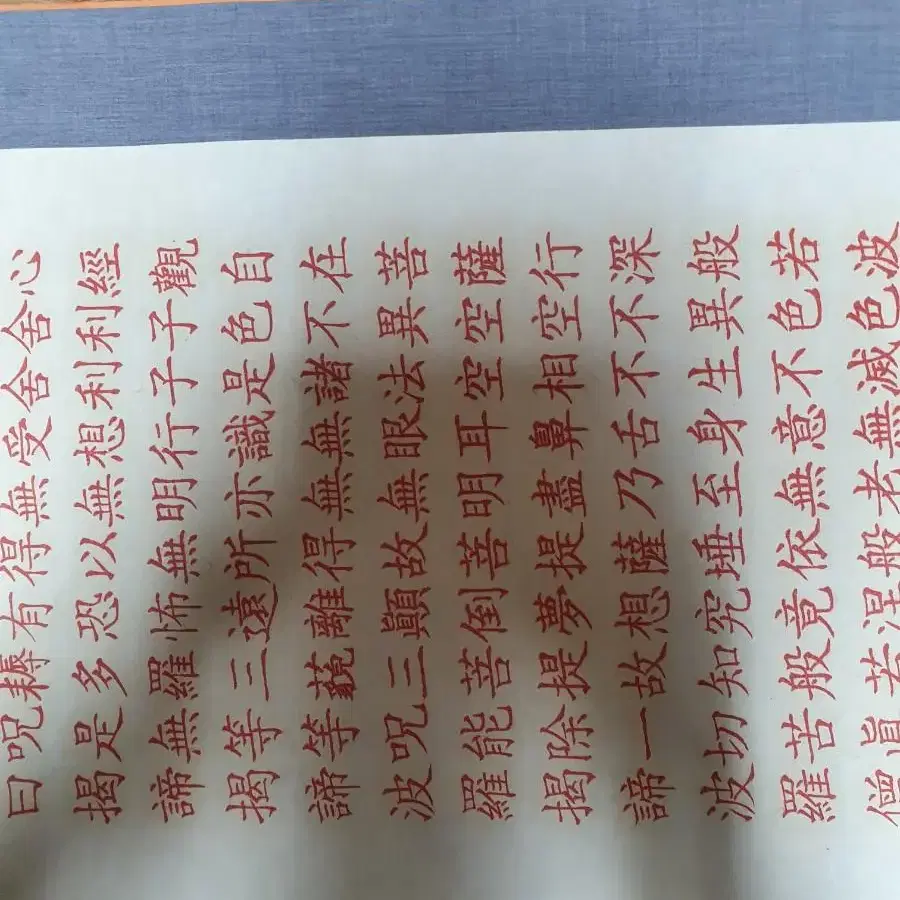 心經觀自在菩薩行深般若波
舍利子色不異空空不異色色
舍利子是諸法空相不生不滅
受想行識無眼耳鼻舌身意無
無無明亦無無明盡乃至無老
得以無所得故菩提薩埵依般
有恐怖遠離顚倒夢想究竟涅
耨多羅三藐三菩提故知般若
呪是無等等呪能除一切苦眞
曰揭諦揭諦波羅揭諦波羅僧